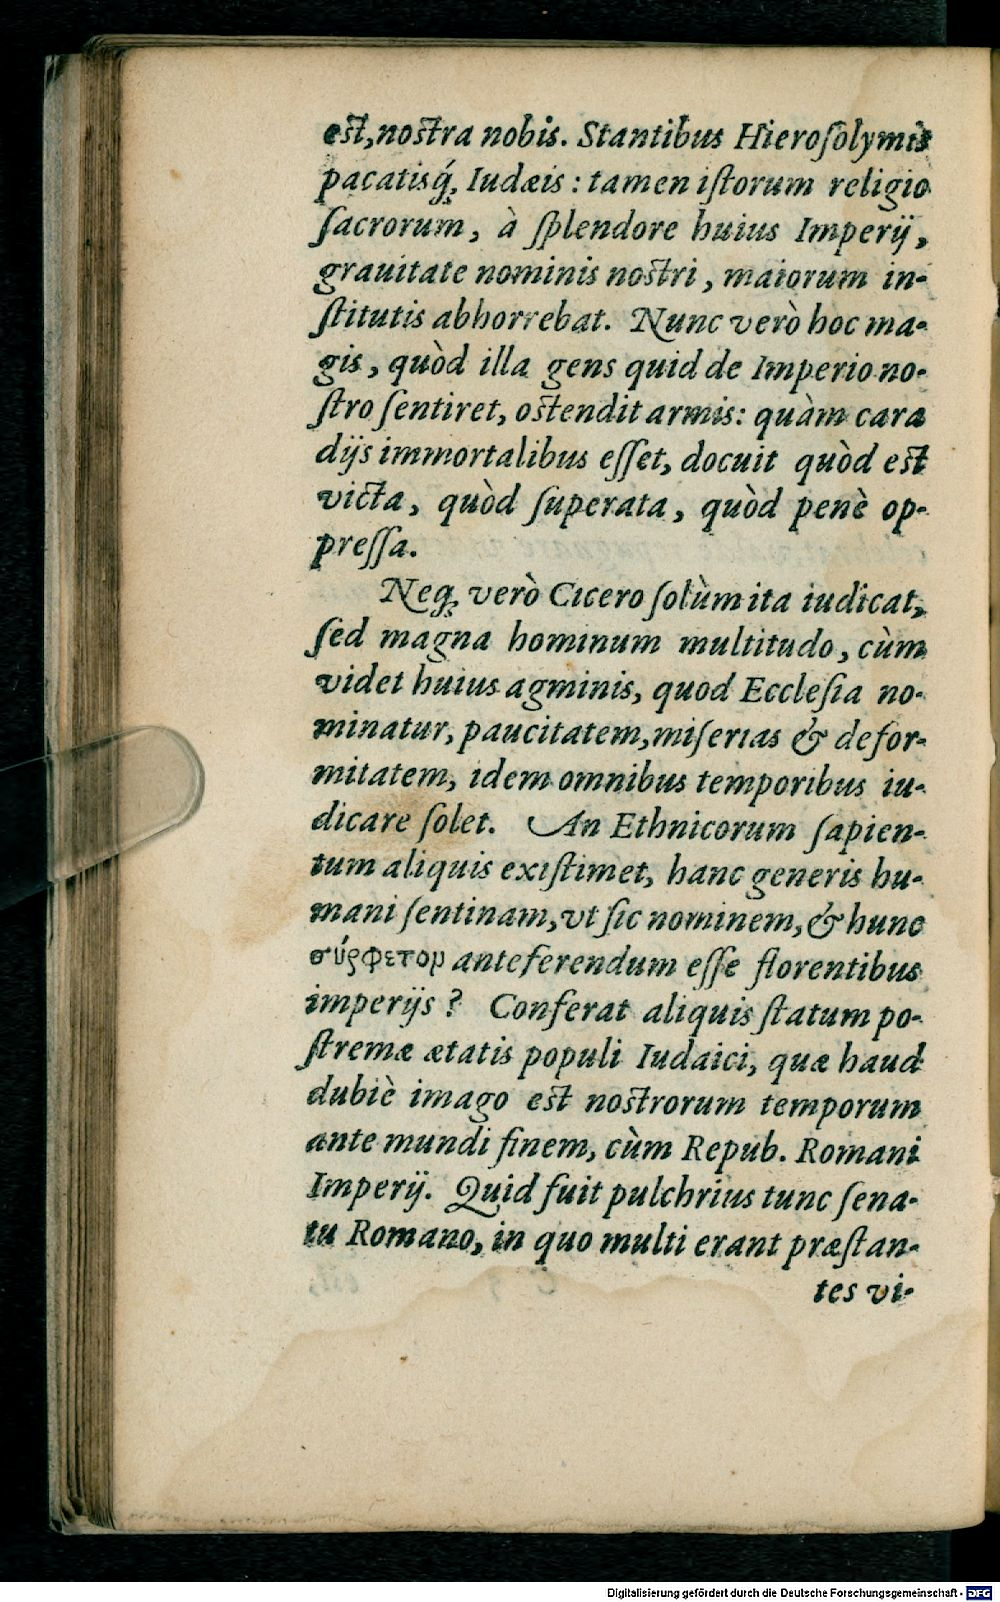 est, nostra nobis. Stantibus Hierosolymis
pacatisq́;, Iudæis: tamen istorum religio
sacrorum, à splendore huius Imperij,
grauitate nominis nostri, maiorum in-
stitutis abhorrebat. Nunc verò hoc ma-
gis, quòd illa gens quid de Imperio no-
stro sentiret, ostendit armis: quàm cara
dijs immortalibus esset, docuit quòd est
victa, quòd superata, quòd penè op-
pressa.
Neq; verò Cicero solùm ita iudicat,
sed magna hominum multitudo, cùm
videt huius agminis, quod Ecclesia no-
minatur, paucitatem, miserias & defor-
mitatem, idem omnibus temporibus iu-
dicare solet. An Ethnicorum sapien-
tum aliquis existimet, hanc generis hu-
mani sentinam, vt sic nominem, & hunc
σύρφετον anteferendum esse florentibus
imperijs? Conferat aliquis statum po-
stremæ ætatis populi Iudaici, quæ haud
dubiè imago est nostrorum temporum
ante mundi finem, cùm Repub. Romani
Imperij. Quid fuit pulchrius tunc sena-
tu Romano, in quo multi erant præstan-
tes vi-
Digitalisierung gefördert durch die Deutsche Forschungsgemeinschaft - DFG